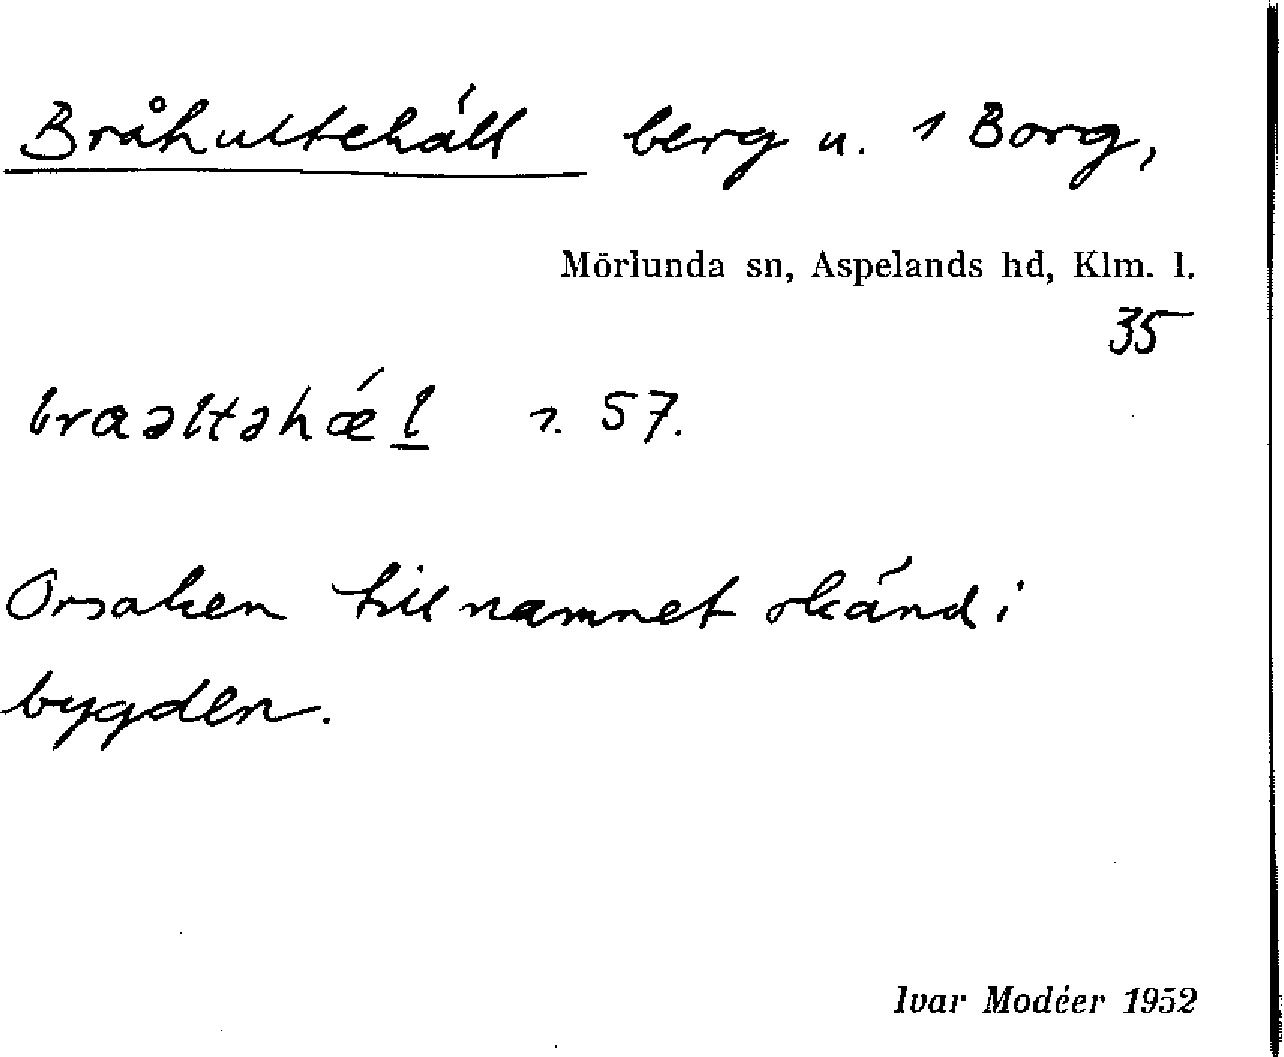 Bråhultehäll berg u. 1 Borg,
Mörlunda sn, Aspelands hd, Klm. l.
35
braəltəhǽl̲ r. 57.
Orsaken till namnet okänd i
bygden.
Ivar Modéer 1952